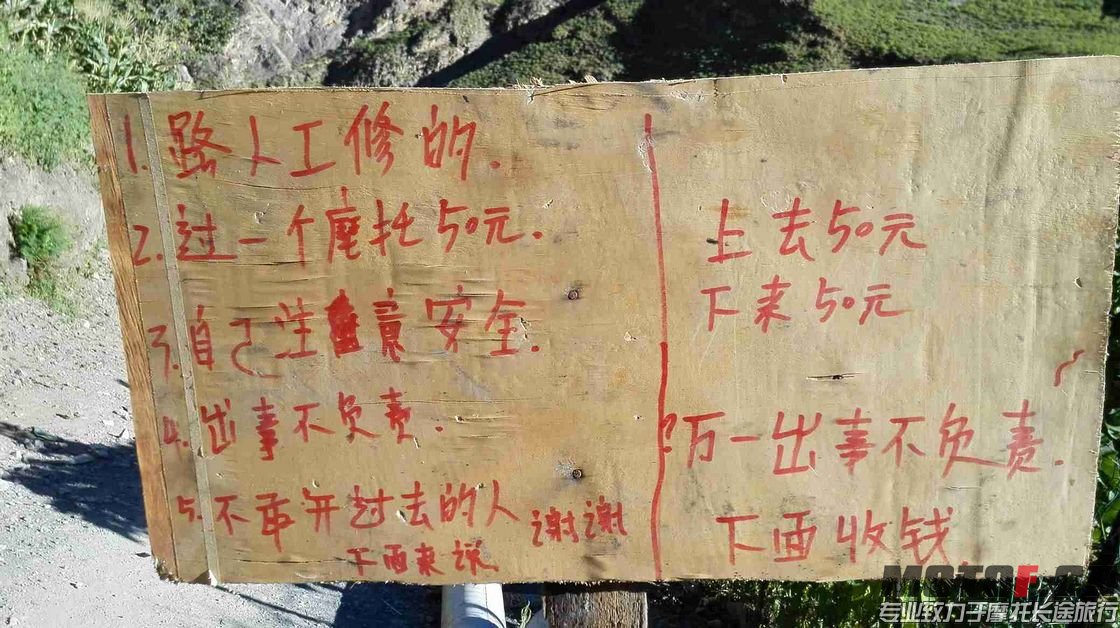 1. 路人工修的.
2. 过一个摩托50元.
3. 自己注意安全.
4. 出事不负责.
5. 不敢开过去的人
下面来说. 谢谢
上去50元
下来50元
万一出事不负责.
下面收钱
专业致力于摩托长途旅行